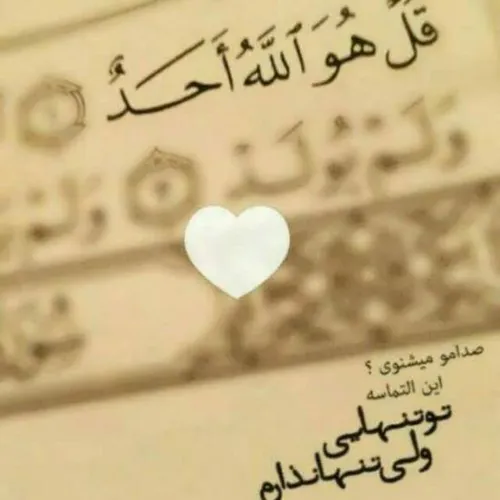 قُلْ هُوَ ٱللَّهُ أَحَدٌ
وَلَمْ يُولَدْ ۝٣ وَلَمْ
صدامو میشنوی ؟
این التماسه
تو تنهایی
ولی تنهانذارم